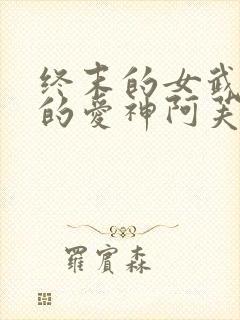 终末的女武
的爱神阿芙
羅賓森